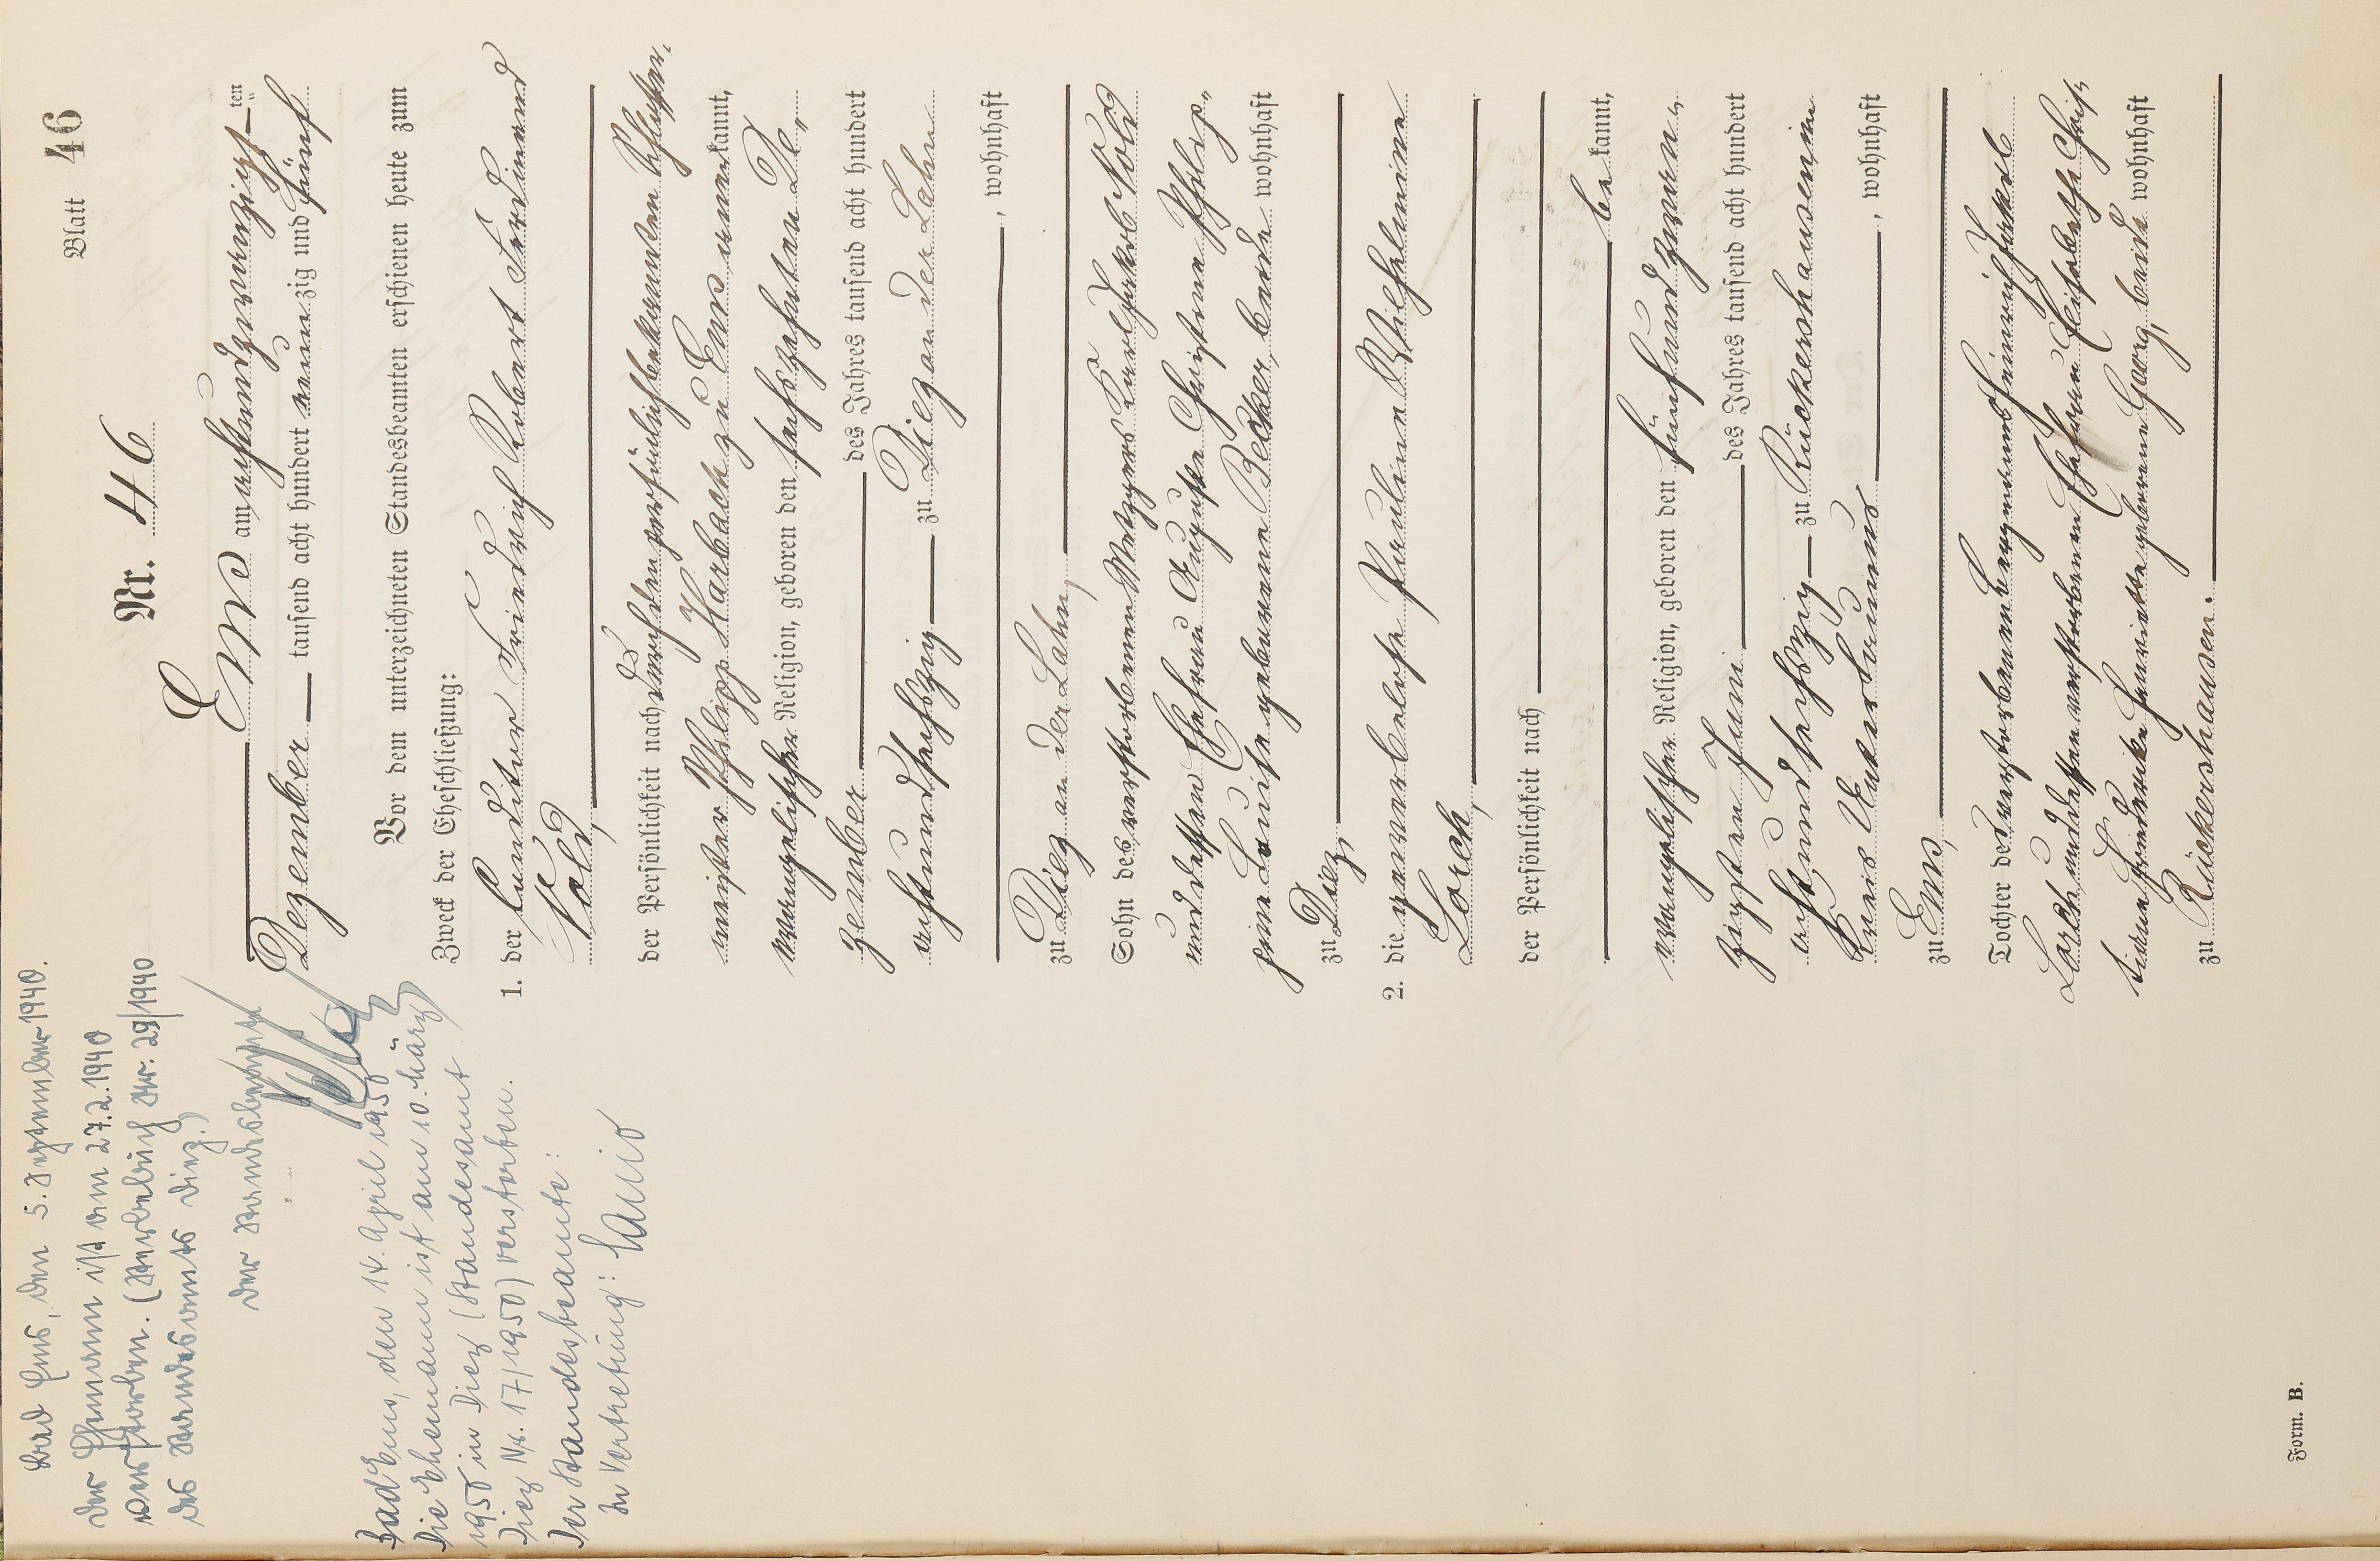 Blatt 46
Nr. 46
Ems am achtundzwanzigsten
Dezember tausend acht hundert neunzig und fünf
Vor dem unterzeichneten Standesbeamten erschienen heute zum
Zweck der Eheschließung:
1. der Conditor Friedrich Robert Ferdinand
Nold,
der Persönlichkeit nach durch den persönlich bekannten Schlosser-
meister Philipp Harbach zu Ems anerkannt,
evangelischer Religion, geboren den sechszehnten De-
zember des Jahres tausend acht hundert
achtundsechszig zu Diez an der Lahn
, wohnhaft
zu Diez an der Lahn,
Sohn des verstorbenen Metzgers Karl Jakob Nold
und dessen Ehefrau Auguste Christine Philip-
pine Louise geborene Becker, beide wohnhaft
zu Diez,
2. die gewerbelose Pauline Wilhelmine
Lorch,
der Persönlichkeit nach
bekannt,
evangelischer Religion, geboren den fünfundzwan-
zigsten Juni des Jahres tausend acht hundert
achtundsechszig zu Rückershausen im
Kreis Untertaunus , wohnhaft
zu Ems,
Tochter des verstorbenen Bergmanns Heinrich Jakob
Lorch und dessen verstorbenen Ehefrau Elisabethe Chris-
tiane Friederike Henriette geborene Georg, beide wohnhaft
zu Rückershausen.
Bad Ems, den 5. September 1940.
Der Ehemann ist am 27.2.1940
verstorben. (Sterbebuch Nr. 29/1940
des Standesamts Diez.)
Der Standesbeamte
Bad Ems, den 14. April 1950
Die Ehemann ist am 10. März
1950 in Diez (Standesamt
Diez Nr. 17/1950) verstorben.
Der Standesbeamte:
In Vertretung:
Form. B.